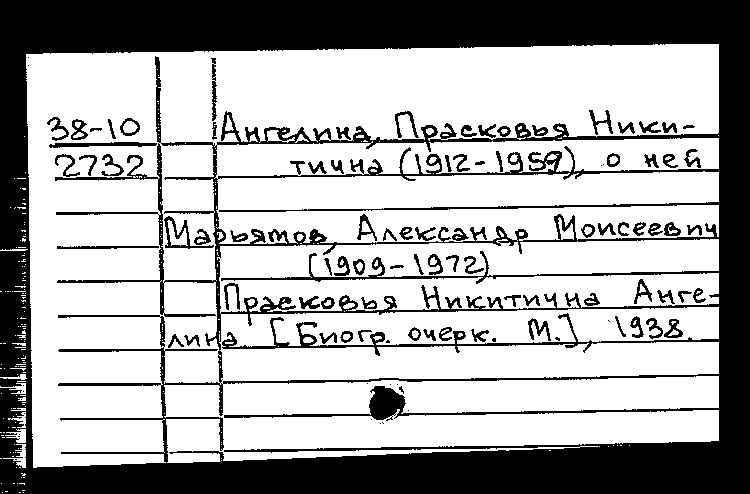 38-10
2732
Ангелина, Прасковья Ники-
тична (1912-1959), о ней
Марьямов, Александр Моисеевич
(1909-1972).
Прасковья Никитична Анге-
лина. [Биогр. очерк. М.], 1938.